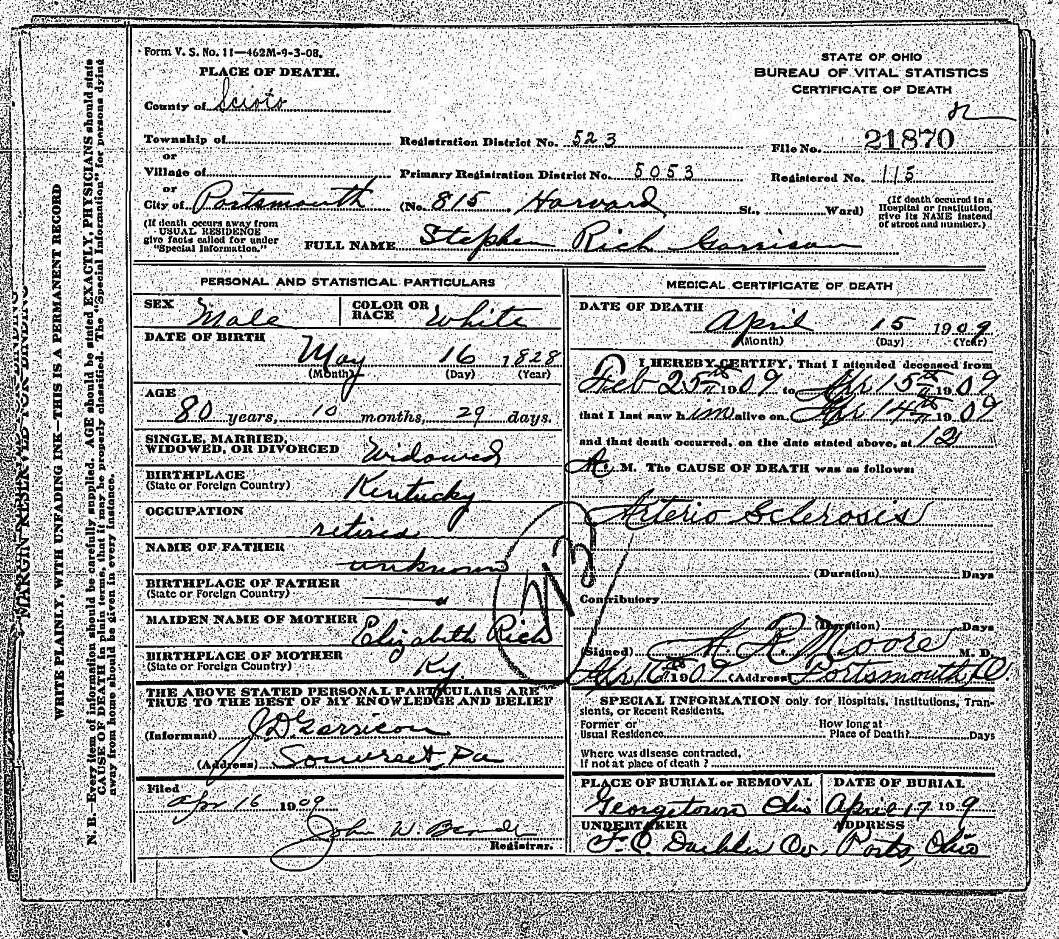 Form V. S. No. 11—462M-9-3-08.
PLACE OF DEATH.
STATE OF OHIO
BUREAU OF VITAL STATISTICS
CERTIFICATE OF DEATH
County of Scioto
Township of
Registration District No. 523
File No. 21870
or
Village of
Primary Registration District No. 5053
Registered No. 115
or
City of Portsmouth (No. 815 Harvard St., Ward)
(If death occurs away from USUAL RESIDENCE give facts called for under "Special Information.")
(If death occured in a Hospital or Institution, give its NAME instead of street and number.)
FULL NAME Stephen Rich Garrison
PERSONAL AND STATISTICAL PARTICULARS
SEX Male
COLOR OR RACE White
DATE OF BIRTH
May 16 1828
(Month) (Day) (Year)
AGE
80 years, 10 months, 29 days.
SINGLE, MARRIED,
WIDOWED, OR DIVORCED Widowed
BIRTHPLACE
(State or Foreign Country) Kentucky
OCCUPATION
retired
NAME OF FATHER
unknown
BIRTHPLACE OF FATHER
(State or Foreign Country) "
MAIDEN NAME OF MOTHER Elizabeth Rich
BIRTHPLACE OF MOTHER
(State or Foreign Country) Ky.
THE ABOVE STATED PERSONAL PARTICULARS ARE
TRUE TO THE BEST OF MY KNOWLEDGE AND BELIEF
(Informant) J D Garrison
(Address) Somerset, Pa
Filed
Apr 16 1909
John W.
Registrar.
MEDICAL CERTIFICATE OF DEATH
DATE OF DEATH
April 15 1909
(Month) (Day) (Year)
I HEREBY CERTIFY, That I attended deceased from
Feb 25th 1909 to Apr 15th 1909
that I last saw him alive on Apr 14th 1909
and that death occurred, on the date stated above, at 12
A. M. The CAUSE OF DEATH was as follows:
Arterio Sclerosis
(Duration) Days
Contributory
(Duration) Days
(Signed) H. R. Moore M. D.
Apr 16th 1909 (Address) Portsmouth, O
SPECIAL INFORMATION only for Hospitals, Institutions, Tran-
sients, or Recent Residents.
Former or
Usual Residence
How long at
Place of Death? Days
Where was disease contracted,
If not at place of death?
PLACE OF BURIAL or REMOVAL
Georgetown Ohio
DATE OF BURIAL
April 17 1909
UNDERTAKER
F. C. Daehler Co.
ADDRESS
Ports, Ohio
MARGIN RESERVED FOR BINDING
WRITE PLAINLY, WITH UNFADING INK—THIS IS A PERMANENT RECORD
N. B. Every item of information should be carefully supplied. AGE should be stated EXACTLY, PHYSICIANS should state
CAUSE OF DEATH in plain terms, that it may be properly classified. The "Special Information" for persons dying
away from home should be given in every instance.